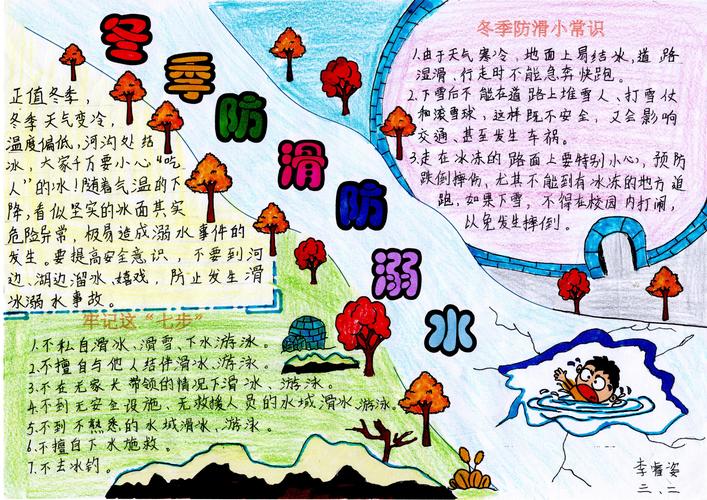 冬季防滑防溺水
正值冬季，
冬季天气变冷，
温度偏低，河沟处结
冰，大家千万要小心“吃
人”的冰！随着气温的下
降，看似坚实的冰面其实
危险异常，极易造成溺水事件的
发生。要提高安全意识，不要到河
边、湖边溜冰、嬉戏，防止发生滑
冰溺水事故。
牢记这“七步”
1.不私自滑冰、滑雪、下水游泳。
2.不擅自与他人结伴滑冰、游泳。
3.不在无家长带领的情况下滑冰、游泳。
4.不到无安全设施、无救援人员的水域滑冰、游泳。
5.不到不熟悉的水域滑冰、游泳。
6.不擅自下水施救。
7.不去冰钓。
冬季防滑小常识
1.由于天气寒冷，地面上易结冰，道路
湿滑，行走时不能急奔快跑。
2.下雪后不能在道路上堆雪人、打雪仗
和滚雪球，这样既不安全，又会影响
交通、甚至发生车祸。
3.走在冰冻的路面上要特别小心，预防
跌倒摔伤，尤其不能到有冰冻的地方追
跑，如果下雪，不得在校园内打闹，
以免发生摔倒。
李睿姿
二、二